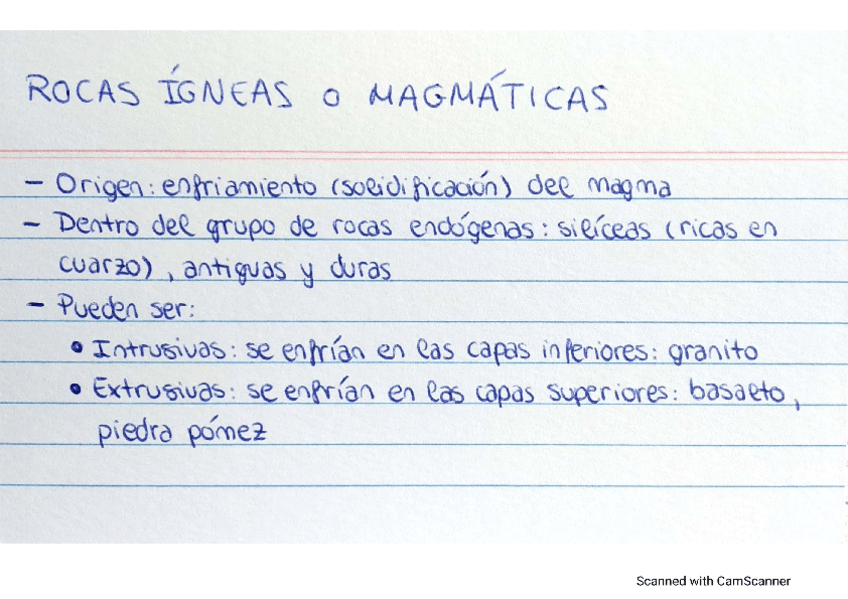 ROCAS ÍGNEAS O MAGMÁTICAS
- Origen: enfriamiento (solidificación) del magma
- Dentro del grupo de rocas endógenas: silíceas (ricas en
cuarzo), antiguas y duras
- Pueden ser:
• Intrusivas: se enfrían en las capas inferiores: granito
• Extrusivas: se enfrían en las capas superiores: basalto,
piedra pómez
Scanned with CamScanner